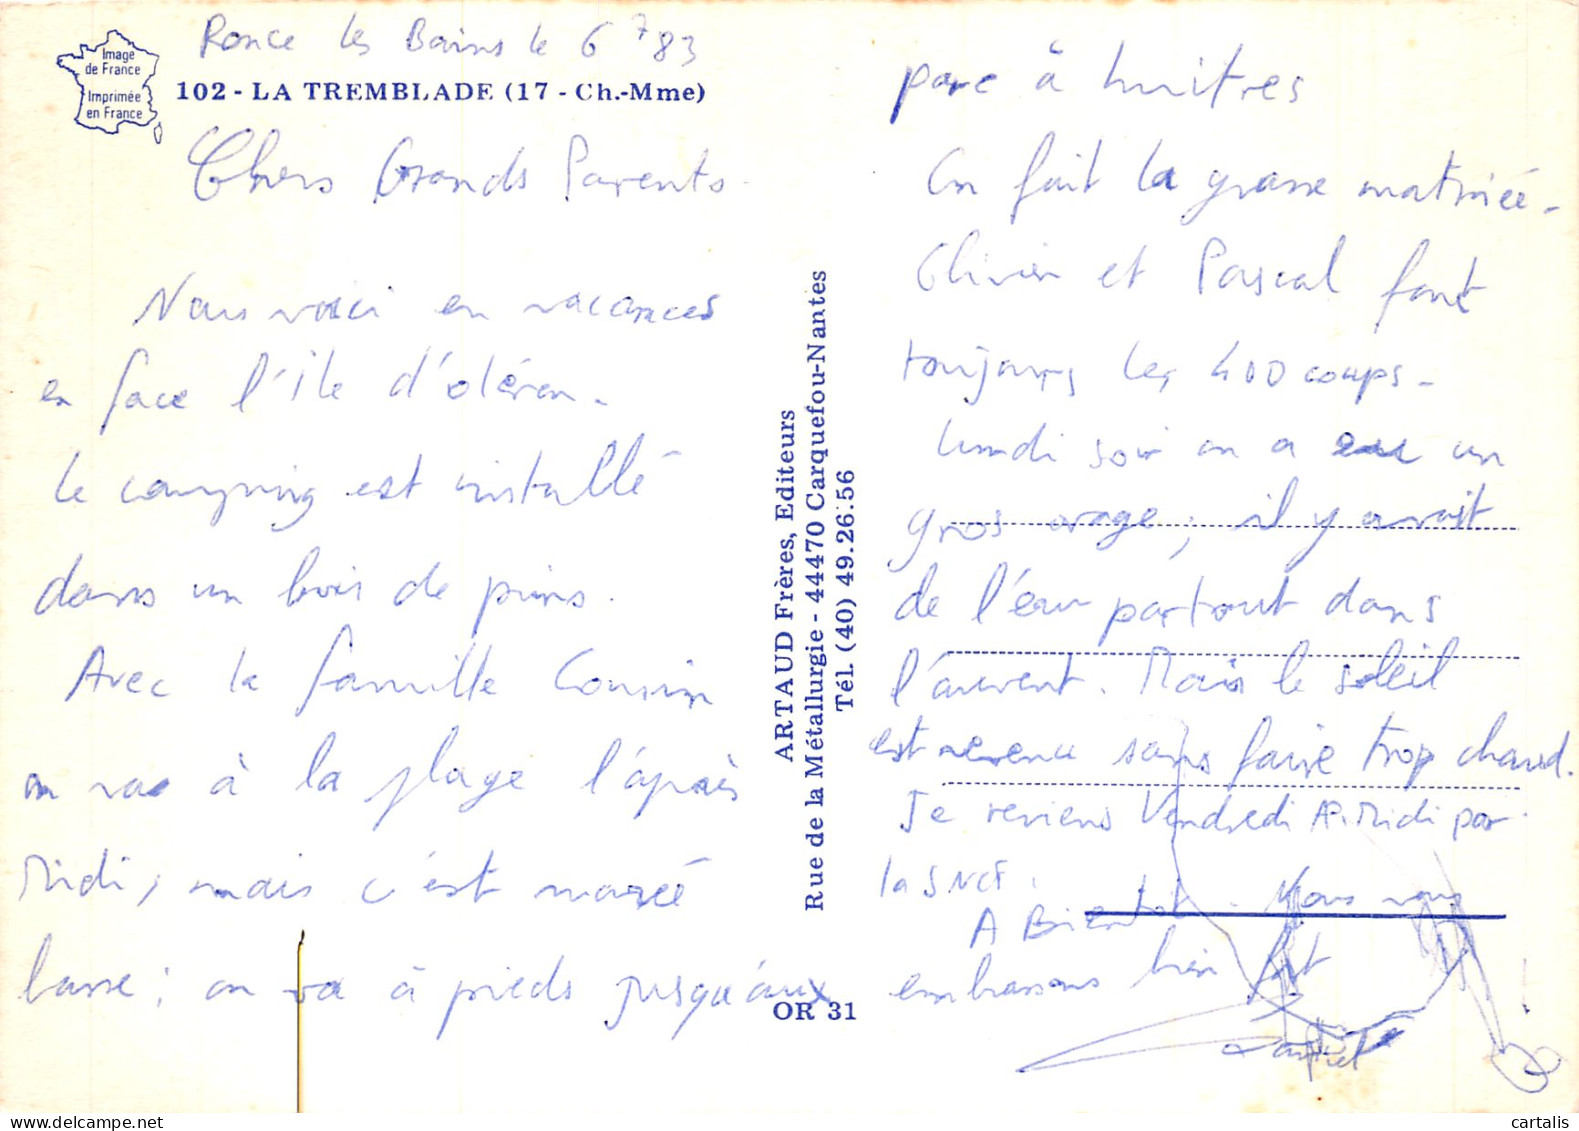 Ronce les Bains le 6 7 83
Image
de France
Imprimée
en France
102 - LA TREMBLADE (17 - Ch.-Mme)
Chers Grands Parents.
Nous voici en vacances
en face l'île d'oléron.
Le camping est installé
dans un bois de pins.
Avec la famille Cousin
on va à la plage l'après
Midi, mais c'est marée
basse; on va à pieds jusqu'aux
ARTAUD Frères, Editeurs
Rue de la Métallurgie - 44470 Carquefou-Nantes
Tél. (40) 49.26.56
OR 31
parc à huitres
On fait la grasse matinée.
Olivier et Pascal font
toujours les 400 coups.
Lundi soir on a eu un
gros orage; il y avait
de l'eau partout dans
l'auvent. Mais le soleil
est revenu sans faire trop chaud.
Je reviens Vendredi AP. Midi par
la SNCF.
A Bientôt. Nous vous
embrassons bien fort
cartalis